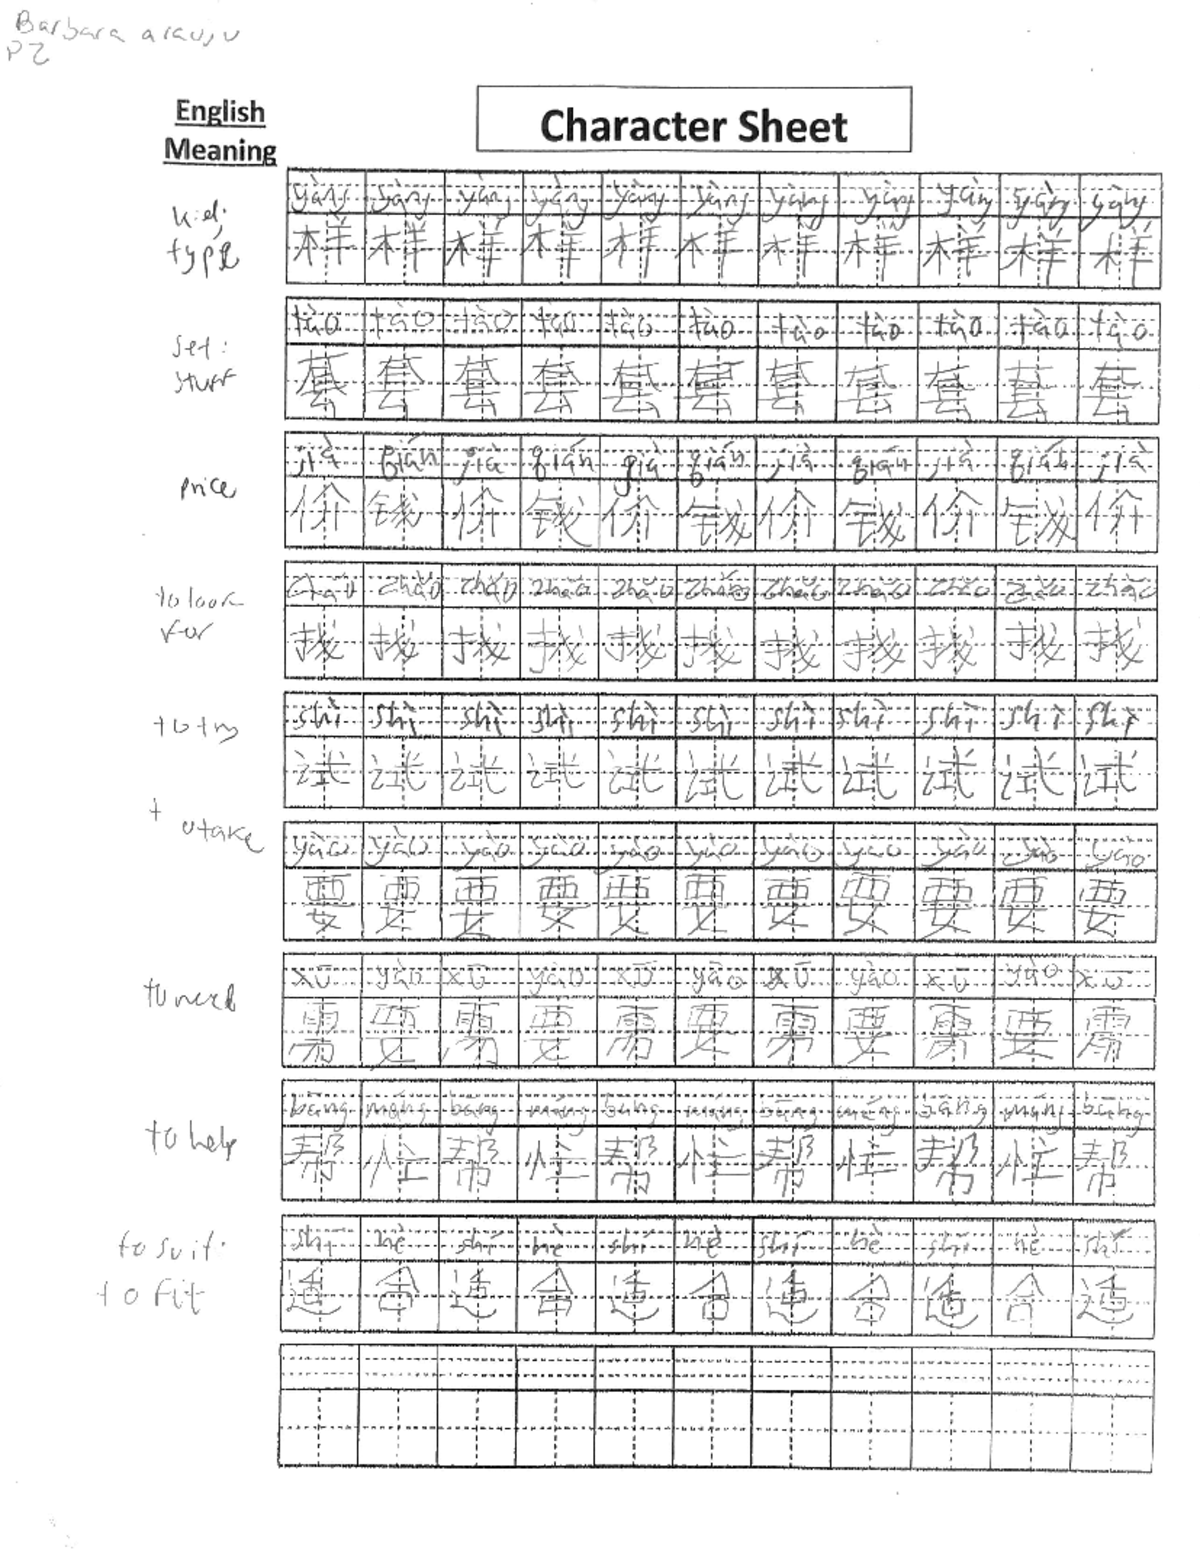 Barbara araujo
P2
English
Meaning
Character Sheet
yàng yàng yàng yàng yàng yàng yàng yàng yàng yàng yàng
type
样 样 样 样 样 样 样 样 样 样 样
tào tào tào tào tào tào tào tào tào tào tào
set:
stuff
套 套 套 套 套 套 套 套 套 套 套
jià qián jià qián già qián jià qián jià qián jià
price
价 钱 价 钱 价 钱 价 钱 价 钱 价
zhǎo zhǎo zhǎo zhǎo zhǎo zhǎo zhǎo zhǎo zhǎo zhǎo zhǎo
to look
for
找 找 找 找 找 找 找 找 找 找 找
shì shì shì shì shì shì shì shì shì shì shì
to try
试 试 试 试 试 试 试 试 试 试 试
to take
yào yào yào yào yào yào yào yào yào yào yào
要 要 要 要 要 要 要 要 要 要 要
xū yào xū yào xū yào xū yào xū yào xū
to need
需 要 需 要 需 要 需 要 需 要 需
bāng máng bāng máng bāng máng bāng máng bāng máng bāng
to help
帮 忙 帮 忙 帮 忙 帮 忙 帮 忙 帮
shì hé shì hé shì hè shì hè shì hè shì
to suit:
to fit
适 合 适 合 适 合 适 合 适 合 适